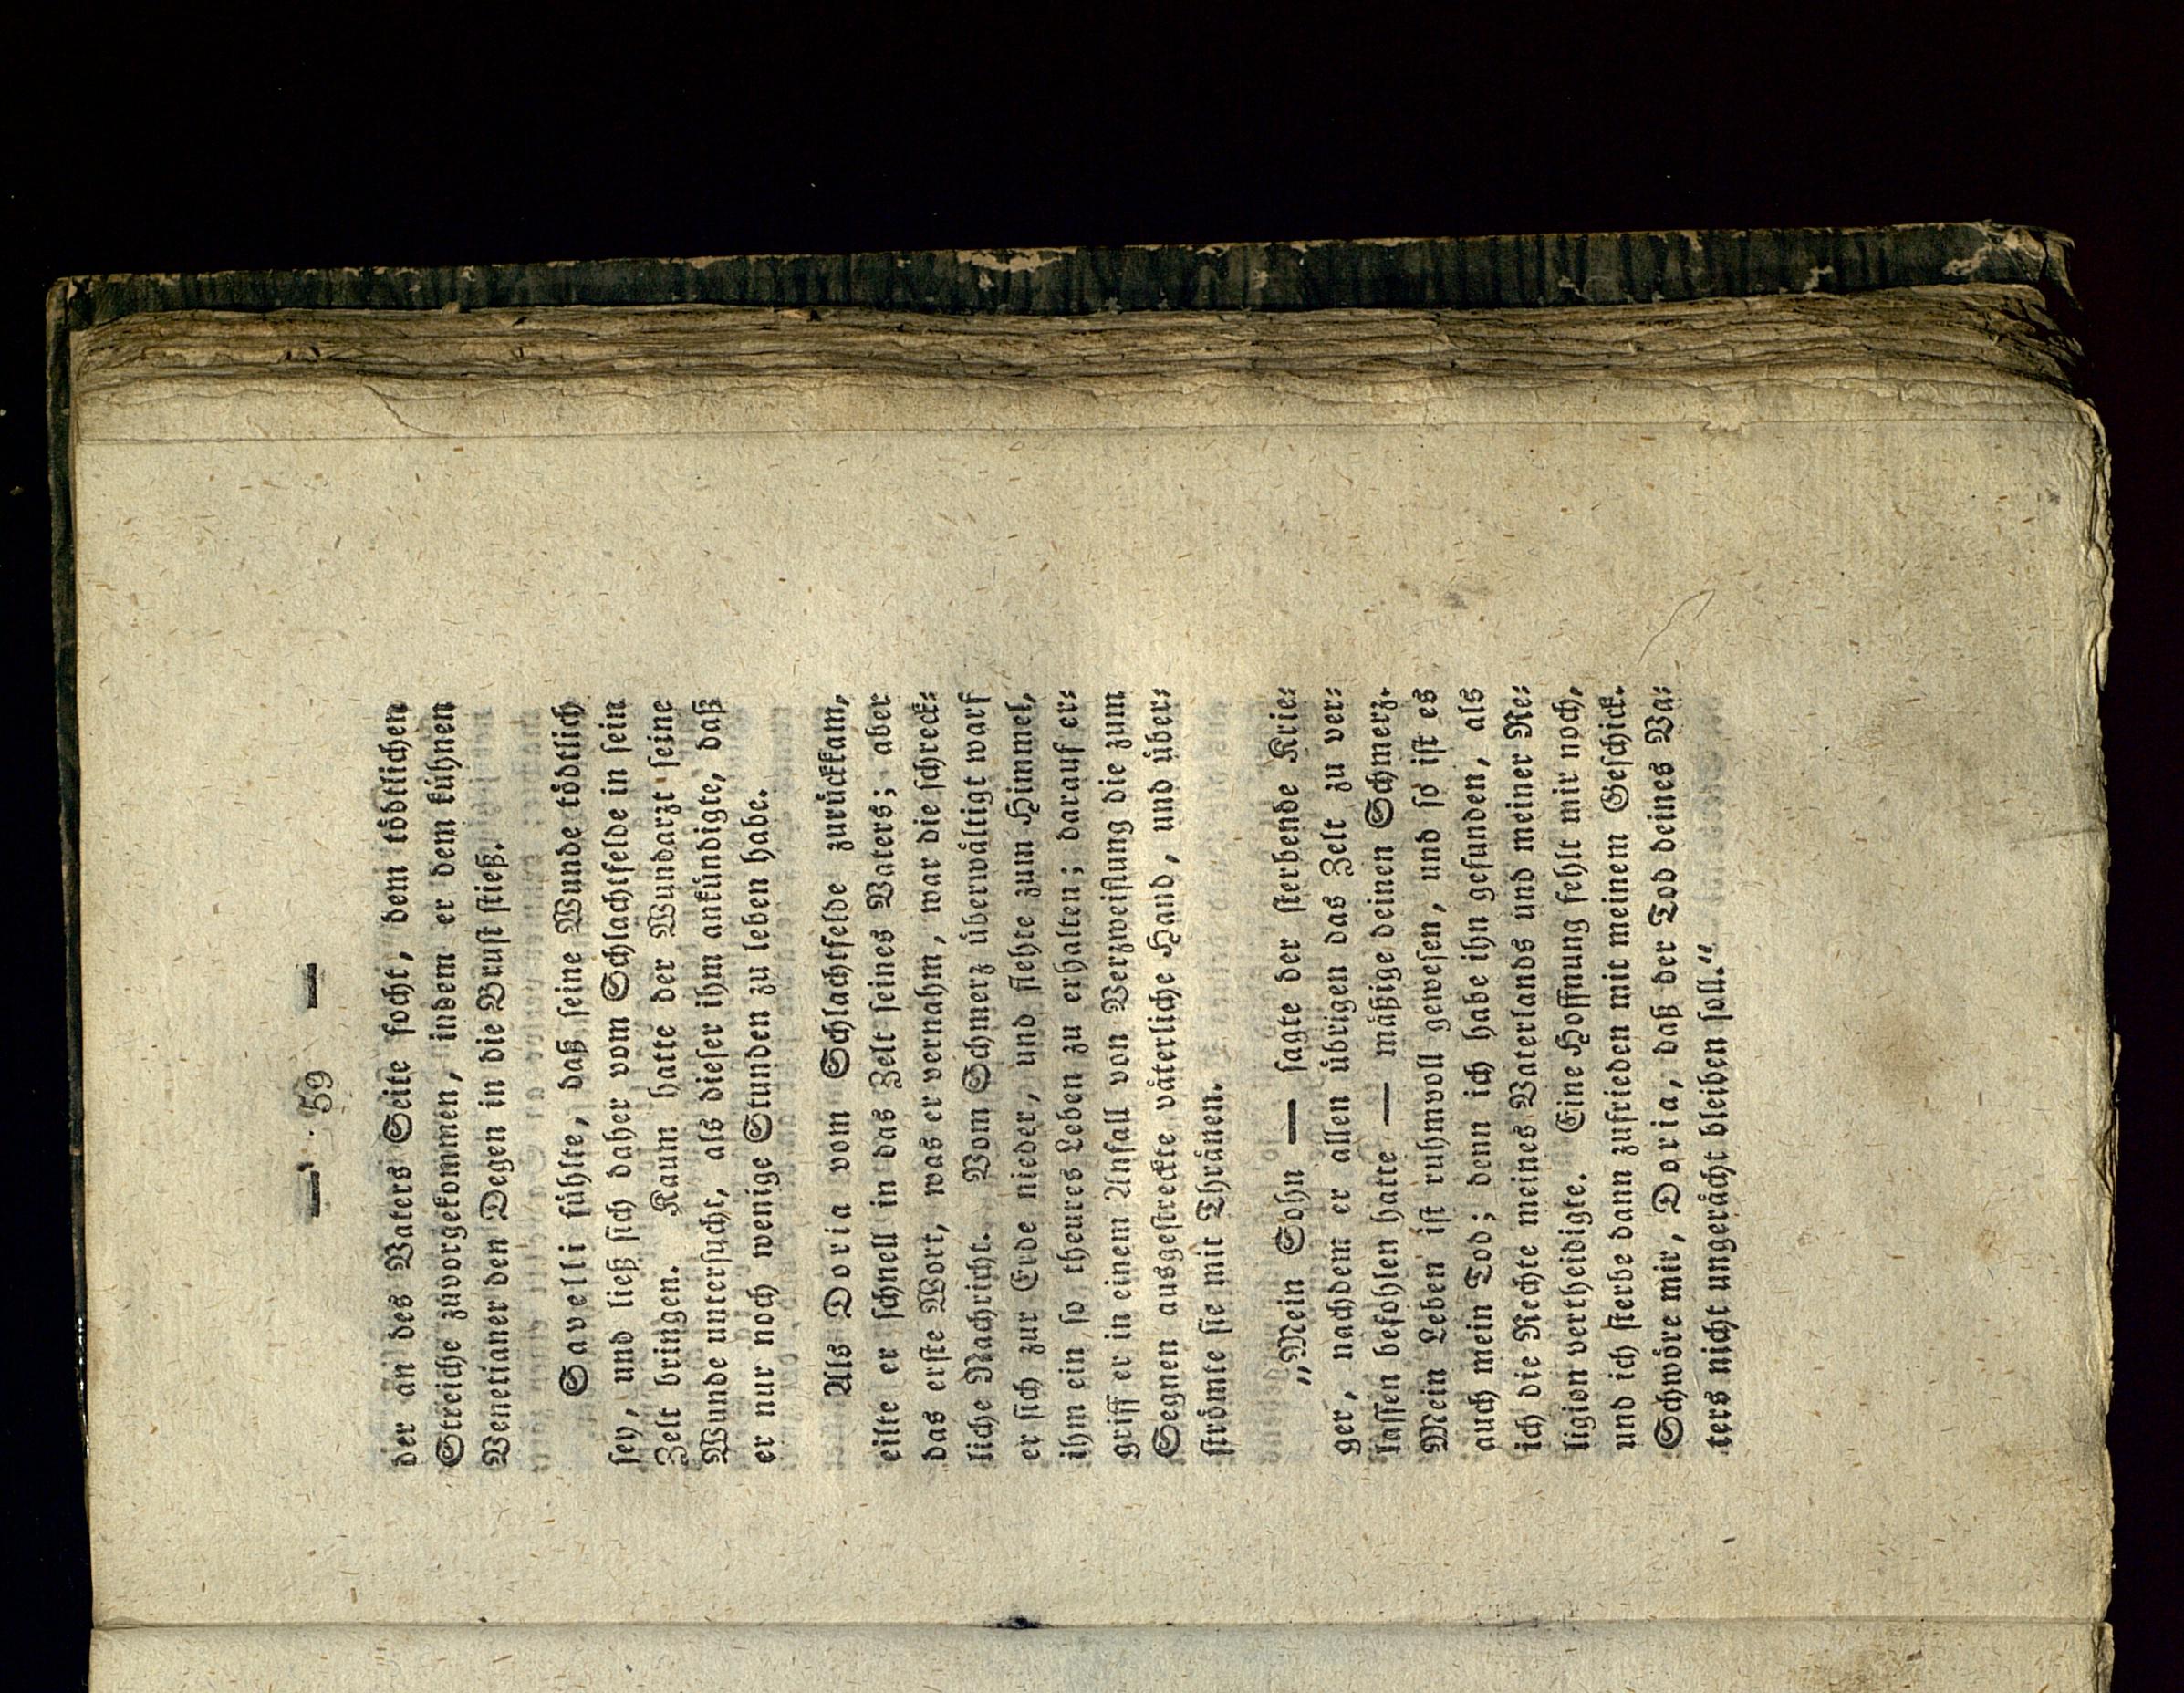 — 59 —
der an des Vaters Seite focht, dem tödtlichen
Streiche zuvorgekommen, indem er dem kühnen
Venetianer den Degen in die Brust stieß.
Savelli fühlte, daß seine Wunde tödtlich
sey, und ließ sich daher vom Schlachtfelde in sein
Zelt bringen. Kaum hatte der Wundarzt seine
Wunde untersucht, als dieser ihm ankündigte, daß
er nur noch wenige Stunden zu leben habe.
Als Doria vom Schlachtfelde zurückkam,
eilte er schnell in das Zelt seines Vaters; aber
das erste Wort, was er vernahm, war die schreck-
liche Nachricht. Vom Schmerz überwältigt warf
er sich zur Erde nieder, und flehte zum Himmel,
ihm ein so theures Leben zu erhalten; darauf er-
griff er in einem Anfall von Verzweiflung die zum
Segnen ausgestreckte väterliche Hand, und über-
strömte sie mit Thränen.
„Mein Sohn — sagte der sterbende Krie-
ger, nachdem er allen übrigen das Zelt zu ver-
lassen befohlen hatte — mäßige deinen Schmerz.
Mein Leben ist ruhmvoll gewesen, und so ist es
auch mein Tod; denn ich habe ihn gefunden, als
ich die Rechte meines Vaterlands und meiner Re-
ligion vertheidigte. Eine Hoffnung fehlt mir noch,
und ich sterbe dann zufrieden mit meinem Geschick.
Schwöre mir, Doria, daß der Tod deines Va-
ters nicht ungerächt bleiben soll.“